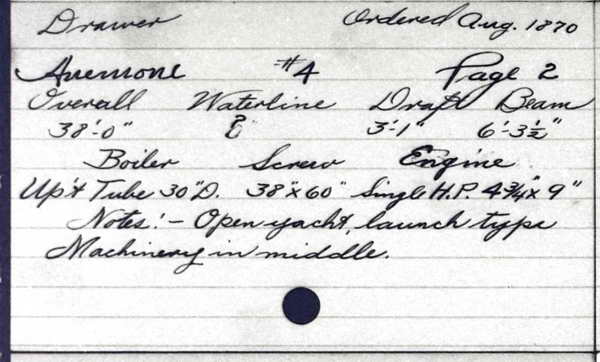 Drawer Ordered Aug. 1870
Anemone #4 Page 2
Overall Waterline Draft Beam
38'-0" ? 3'-1" 6'-3½"
Boiler Screw Engine
Up't Tube 30"D. 38"x60" Single H.P. 4¾"x9"
Notes:- Open yacht, launch type
Machinery in middle.